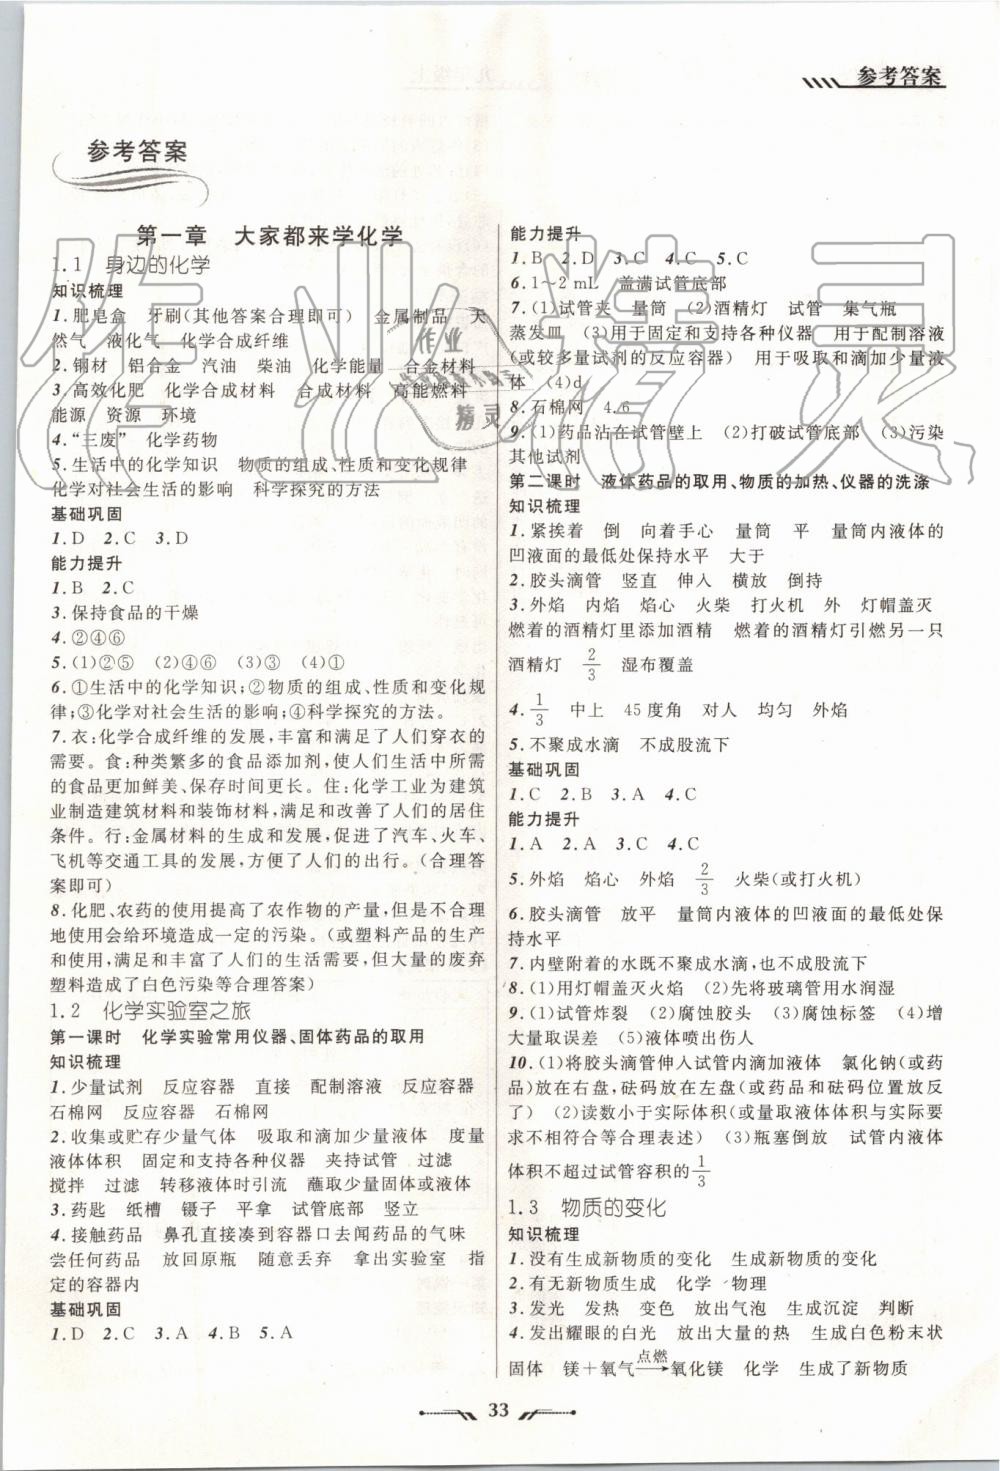 参考答案
参考答案
第一章　大家都来学化学
1.1　身边的化学
知识梳理
1.肥皂盒　牙刷(其他答案合理即可)　金属制品　天
然气　液化气　化学合成纤维
2.钢材　铝合金　汽油　柴油　化学能量　合金材料
3.高效化肥　化学合成材料　合成材料　高能燃料
能源　资源　环境
4.“三废”　化学药物
5.生活中的化学知识　物质的组成、性质和变化规律
化学对社会生活的影响　科学探究的方法
基础巩固
1.D　2.C　3.D
能力提升
1.B　2.C
3.保持食品的干燥
4.②④⑥
5.(1)②⑤　(2)④⑥　(3)③　(4)①
6.①生活中的化学知识;②物质的组成、性质和变化规
律;③化学对社会生活的影响;④科学探究的方法。
7.衣:化学合成纤维的发展,丰富和满足了人们穿衣的
需要。食:种类繁多的食品添加剂,使人们生活中的食
品更加鲜美、保存时间更长。住:化学工业为建筑
业制造建筑材料和装饰材料,满足和改善了人们的居住
条件。行:金属材料的生成和发展,促进了汽车、火车、
飞机等交通工具的发展,方便了人们的出行。(合理答
案即可)
8.化肥、农药的使用提高了农作物的产量,但是不合理
地使用会给环境造成一定的污染。(或塑料产品的生产
和使用,满足和丰富了人们的生活需要,但大量的废弃
塑料造成了白色污染等合理答案)
1.2　化学实验室之旅
第一课时　化学实验常用仪器、固体药品的取用
知识梳理
1.少量试剂　反应容器　直接　配制溶液　反应容器
石棉网　反应容器　石棉网
2.收集或贮存少量气体　吸取和滴加少量液体　度量
液体体积　固定和支持各种仪器　夹持试管　过滤
搅拌　过滤　转移液体时引流　蘸取少量液体或固体
3.药匙　纸槽　镊子　平拿　试管底部　竖立
4.接触药品　鼻孔直接凑到容器口去闻药品的气味
尝任何药品　放回原瓶　随意丢弃　拿出实验室　指
定的容器内
基础巩固
1.D　2.C　3.A　4.B　5.A
能力提升
1.B　2.D　3.C　4.C　5.C
6.1~2 mL　盖满试管底部
7.(1)试管夹　量筒　(2)酒精灯　试管　集气瓶
蒸发皿　(3)用于固定和支持各种仪器　用于配制溶液
(或较多量试剂的反应容器)　用于吸取和滴加少量液
体　(4)d
8.石棉网　4.6
9.(1)药品沾在试管壁上　(2)打破试管底部　(3)污染
其他试剂
第二课时　液体药品的取用、物质的加热、仪器的洗涤
知识梳理
1.紧挨着　倒　向着手心　量筒　平　量筒内液体的
凹液面的最低处保持水平　大于
2.胶头滴管　竖直　伸入　横放　倒持
3.外焰　内焰　焰心　火柴　打火机　外　灯帽盖灭
燃着的酒精灯里添加酒精　燃着的酒精灯引燃另一只
酒精灯　2/3　湿布覆盖
4.1/3　中上　45度角　对人　均匀　外焰
5.不聚成水滴　不成股流下
基础巩固
1.C　2.B　3.A　4.C
能力提升
1.A　2.A　3.C　4.C
5.外焰　焰心　外焰　2/3　火柴(或打火机)
6.胶头滴管　放平　量筒内液体的凹液面的最低处保
持水平
7.内壁附着的水既不聚成水滴,也不成股流下
8.(1)用灯帽盖灭火焰　(2)先将玻璃管用水润湿
9.(1)试管炸裂　(2)腐蚀胶头　(3)腐蚀标签　(4)增
大量取误差　(5)液体喷出伤人
10.(1)将胶头滴管伸入试管内滴加液体　氯化钠(或药
品)放在右盘,砝码放在左盘(或药品和砝码位置放反
了)　(2)读数小于实际体积(或量取液体体积与实际要
求不相符合等合理表述)　(3)瓶塞倒放　试管内液体
体积不超过试管容积的1/3
1.3　物质的变化
知识梳理
1.没有生成新物质的变化　生成新物质的变化
2.有无新物质生成　化学　物理
3.发光　发热　变色　放出气泡　生成沉淀　判断
4.发出耀眼的白光　放出大量的热　生成白色粉末状
固体　镁＋氧气 点燃→ 氧化镁　化学　生成了新物质
33
作业精灵
作业
精灵